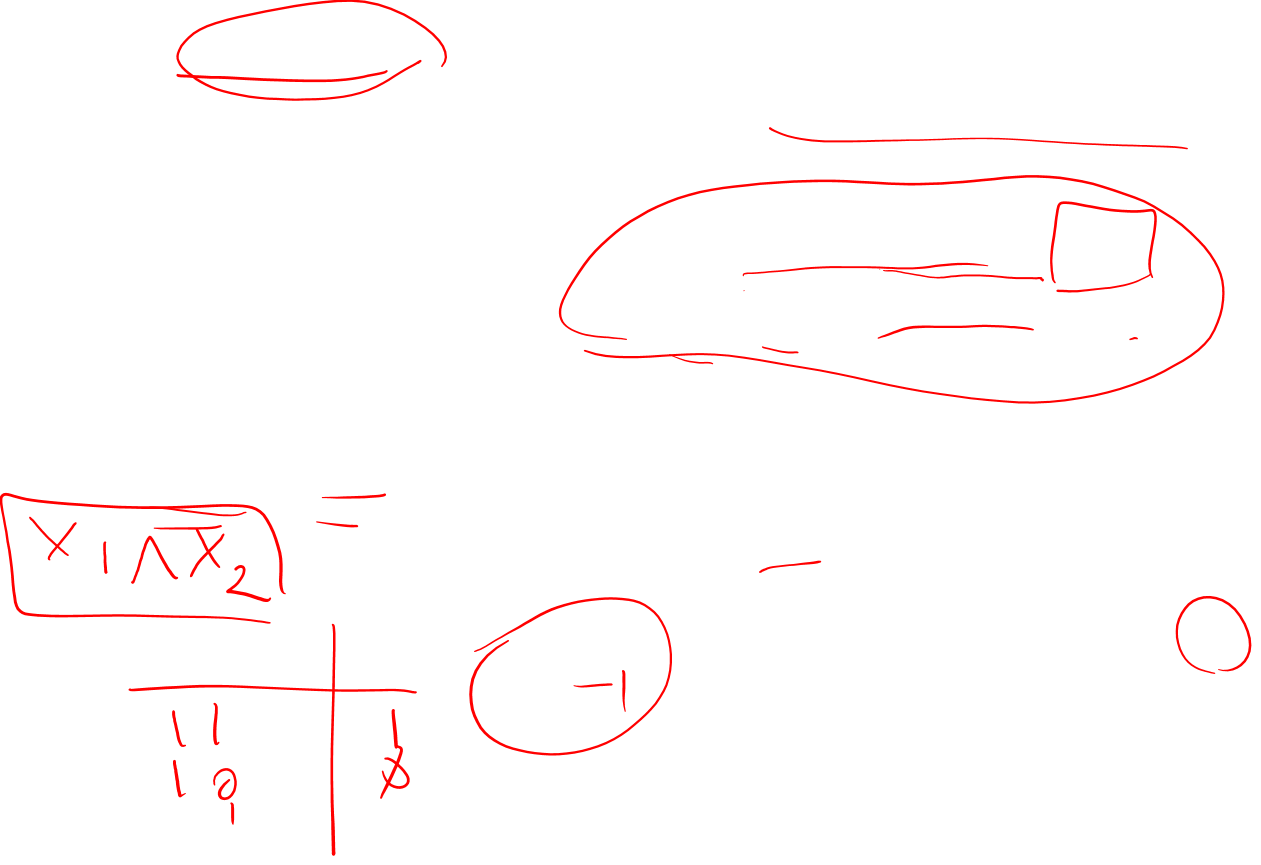 x₁ ∧ x̅₂
-1
11 | 1
10